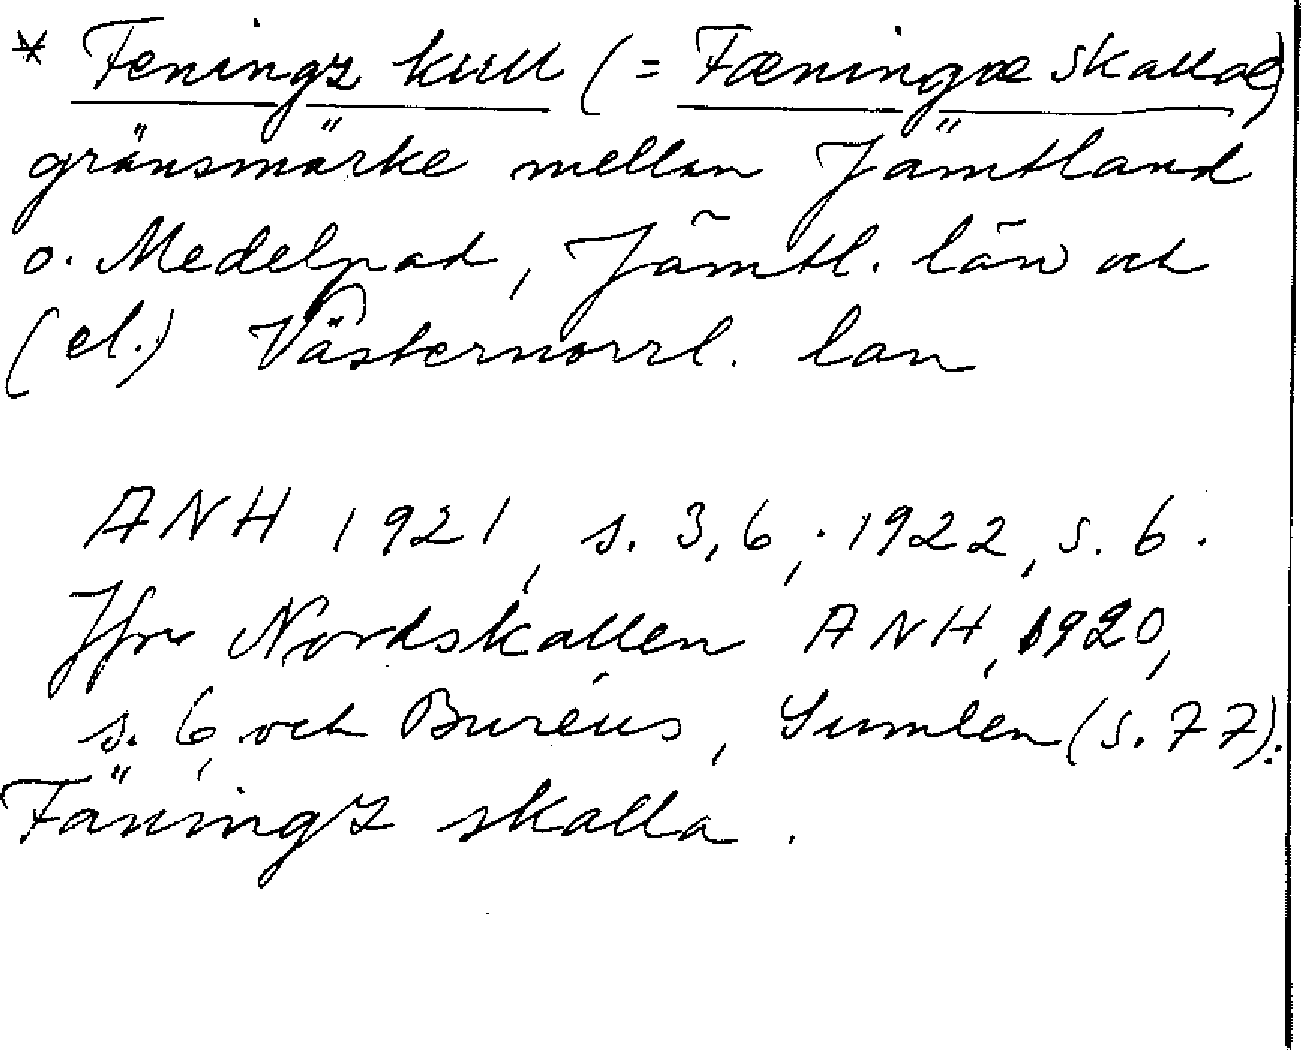 * Feningz kull (= Fæningæ skallæ)
gränsmärke mellan Jämtland
o. Medelpad, Jämtl. län och
(el.) Västernorrl. lan
ANH 1921, s. 3, 6; 1922, s. 6.
Jfr Nordskallen ANH, 1920,
s. 6, och Buréus, Sumlen (s. 77):
Fäningz skalla.